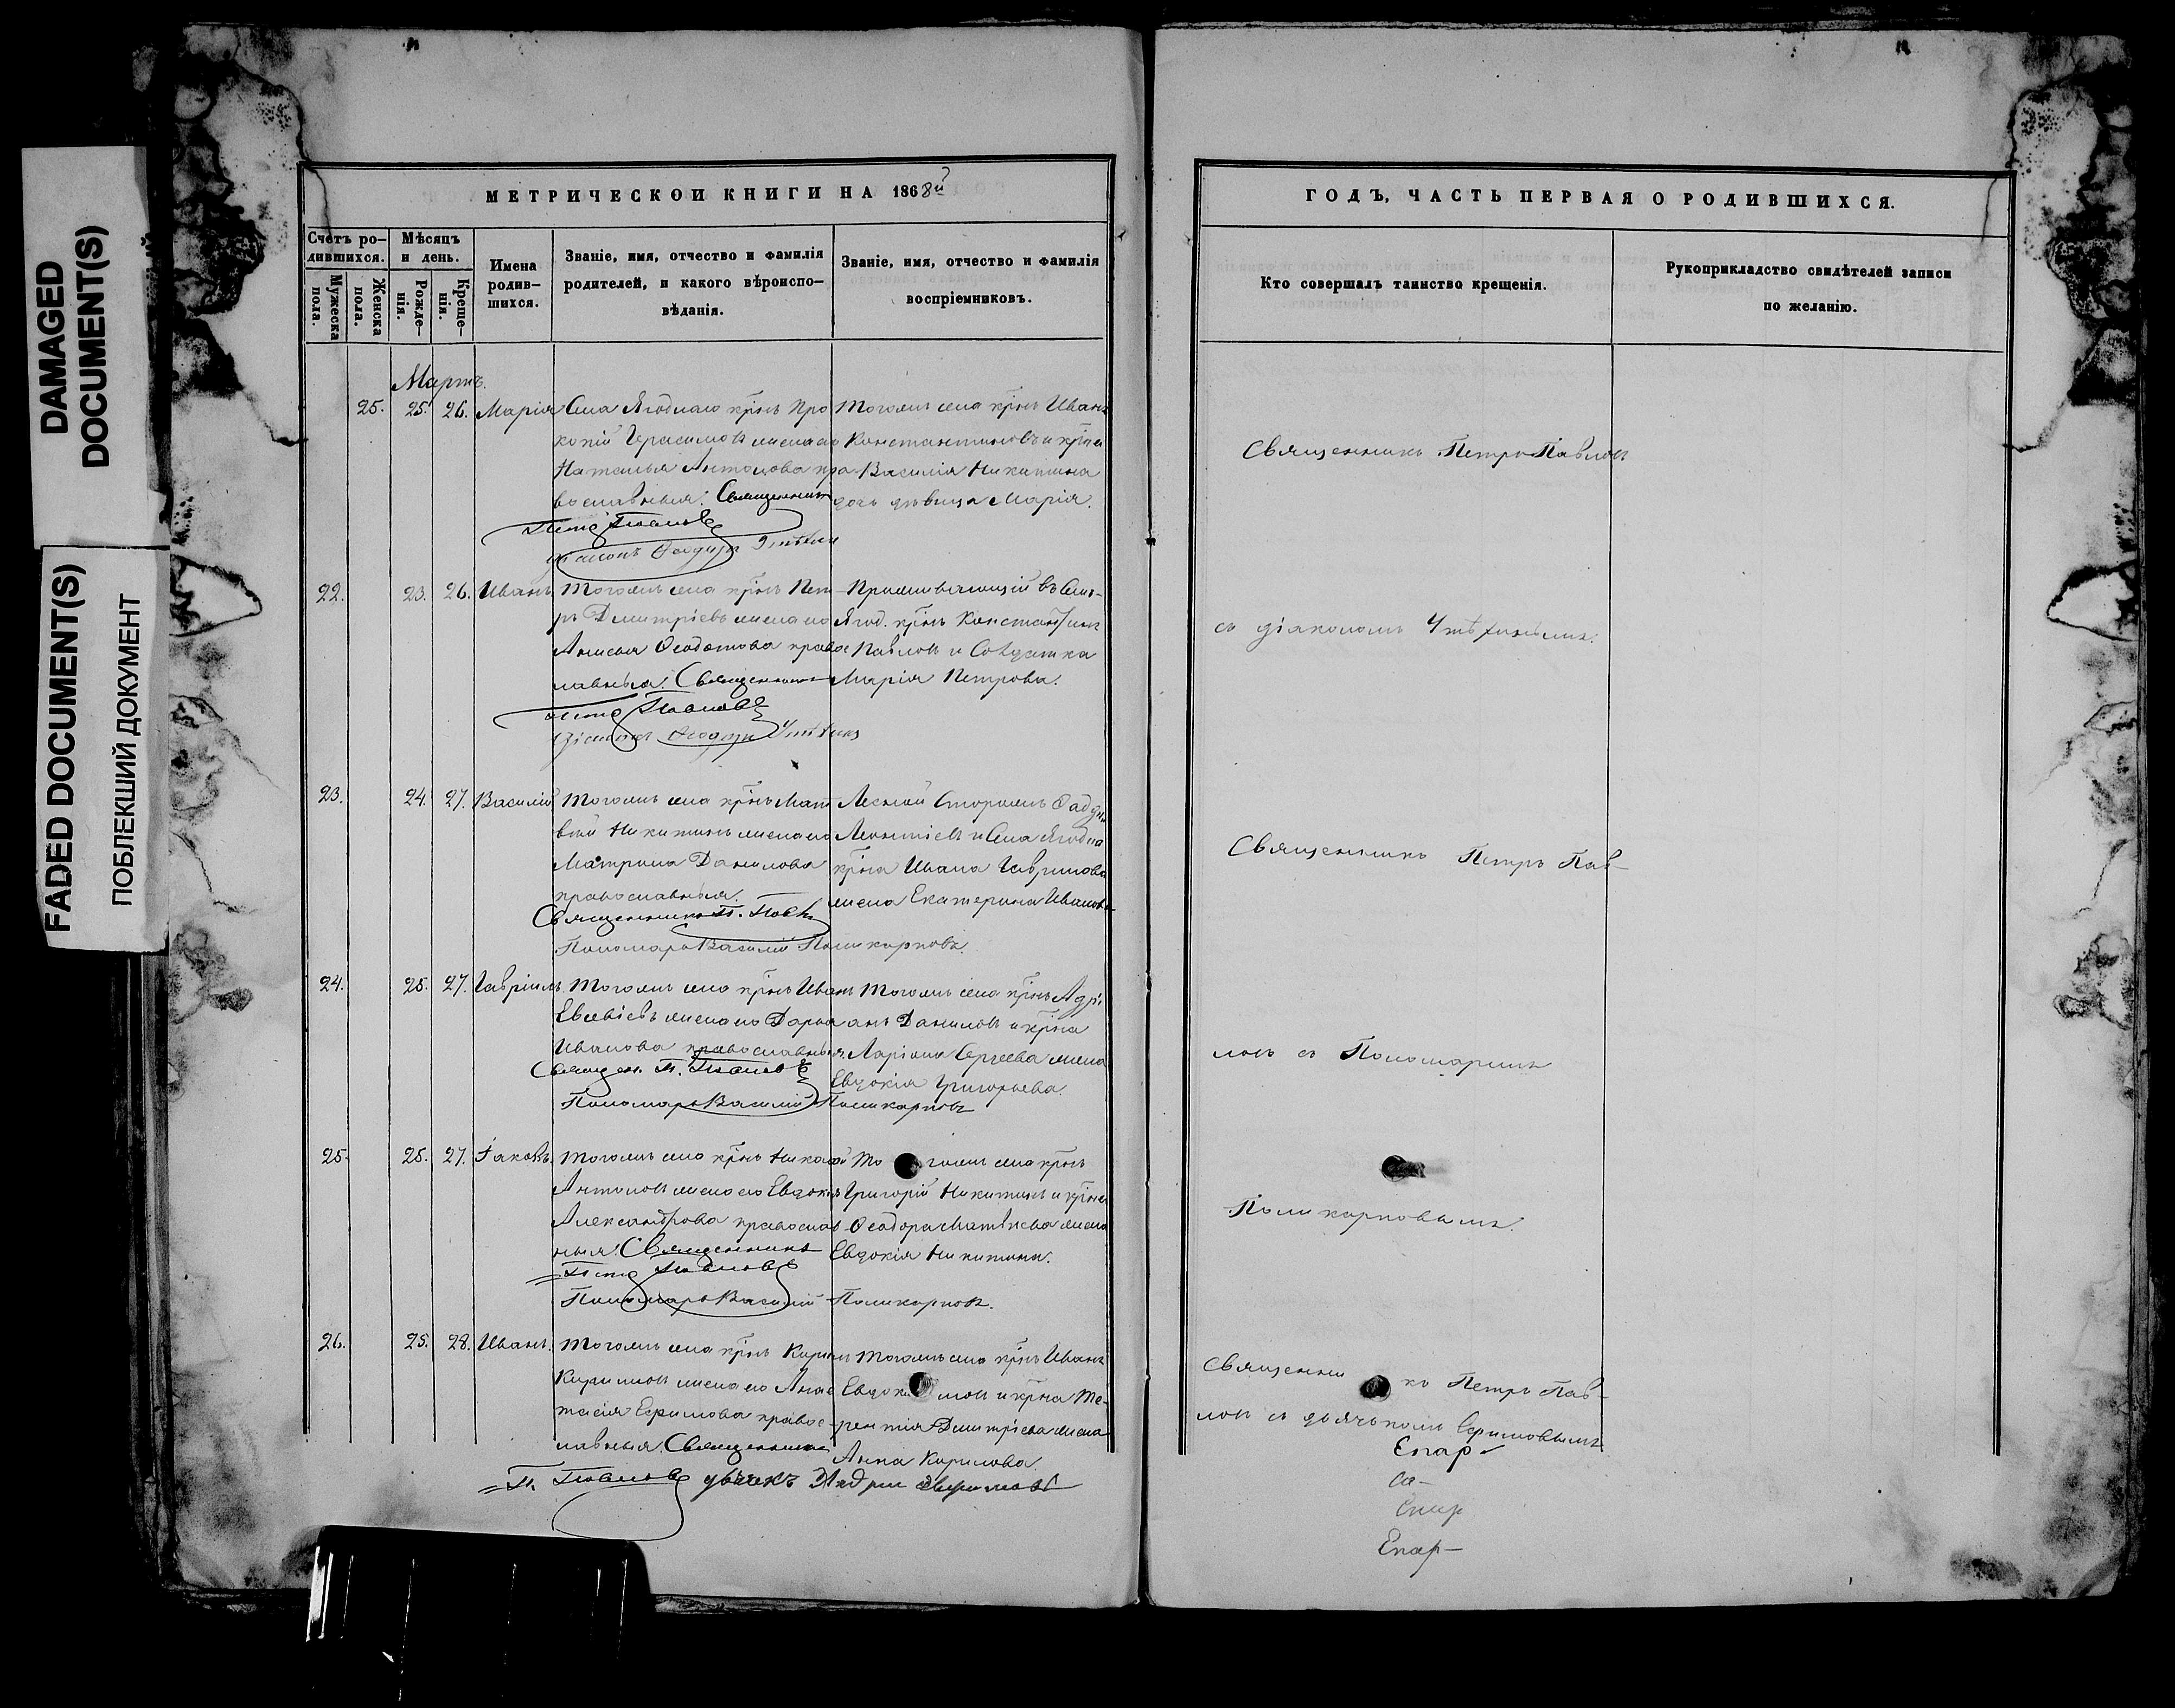 DAMAGED
DOCUMENT(S)
FADED DOCUMENT(S)
ПОБЛЕКШИЙ ДОКУМЕНТ
МЕТРИЧЕСКОЙ КНИГИ НА 1868й
Счетъ ро-
дившихся.
Мужеска
пола.
Женска
пола.
Мѣсяцъ
и день.
Рожде-
нія.
Креще-
нія.
Имена
родив-
шихся.
Званіе, имя, отчество и фамилія
родителей, и какого вѣроиспо-
вѣданія.
Званіе, имя, отчество и фамилія
воспріемниковъ.
Мартъ.
25. 25. 26. Марія
Села Ягоднаго крнъ Про
копій Герасимовъ жена его
Наталья Антонова пра
вославныя. Священникъ
Петръ Павловъ
діаконъ Ѳеодоръ
Тогожъ села крнъ Иванъ
Константиновъ и крна
Василія Никитина
дочь дѣвица Марія.
22. 23. 26. Иванъ
Тогожъ села крнъ Пет-
ръ Димитріевъ жена его
Анисья Ѳедотова правос
лавныя. Священникъ
Петръ Павловъ
Діаконъ Ѳеодоръ
Проживающій въ Селѣ
Ягод. крнъ Константинъ
Павловъ и Солдатка
Марія Петрова.
23. 24. 27. Василій
Тогожъ села крнъ Мат
вѣй Никитинъ жена его
Матрона Данилова
православныя.
Священникъ П. Павл
Пономарь Василій Поликарповъ.
Лесной Сторожъ Ѳаддей
Леонтіевъ и Села Ягодна
крна Ивана Гаврилова
жена Екатерина Иванова
24. 25. 27. Гавріилъ
Тогожъ села крнъ Иванъ
Евсевіевъ жена его Дарья
Иванова православныя.
Священ. П. Павловъ
Пономарь Василій Поликарповъ
Тогожъ села крнъ Адрі
анъ Даниловъ и крна
Ларіона Сергеева жена
Евдокія Григорьева.
25. 25. 27. Іаковъ.
Тогожъ села крнъ Николай
Антоновъ жена его Евдокія
Александрова правосла
ныя. Священникъ
Петръ Павловъ
Пономарь Василій Поликарповъ.
Тогожъ села крнъ
Григорій Никитинъ и крна
Ѳеодора Матвѣева жена
Евдокія Никитина.
26. 25. 28. Иванъ.
Тогожъ села крнъ Кирилъ
Кириловъ жена его Анас
тасія Ефимова правос-
лавныя. Священникъ
П. Павловъ дьячекъ Андрей Ефимовъ
Тогожъ села крнъ Иванъ
Евдокимовъ и крна Те-
рентія Димитріева жена
Анна Кирилова.
ГОДЪ, ЧАСТЬ ПЕРВАЯ О РОДИВШИХСЯ.
Кто совершалъ таинство крещенія.
Рукоприкладство свидѣтелей записи
по желанію.
Священникъ Петръ Павловъ
съ діакономъ
Священникъ Петръ Пав-
ловъ съ Пономаремъ
Поликарповымъ.
Священникъ Петръ Пав-
ловъ съ дьячькомъ Ефимовымъ
Епар
Епар-